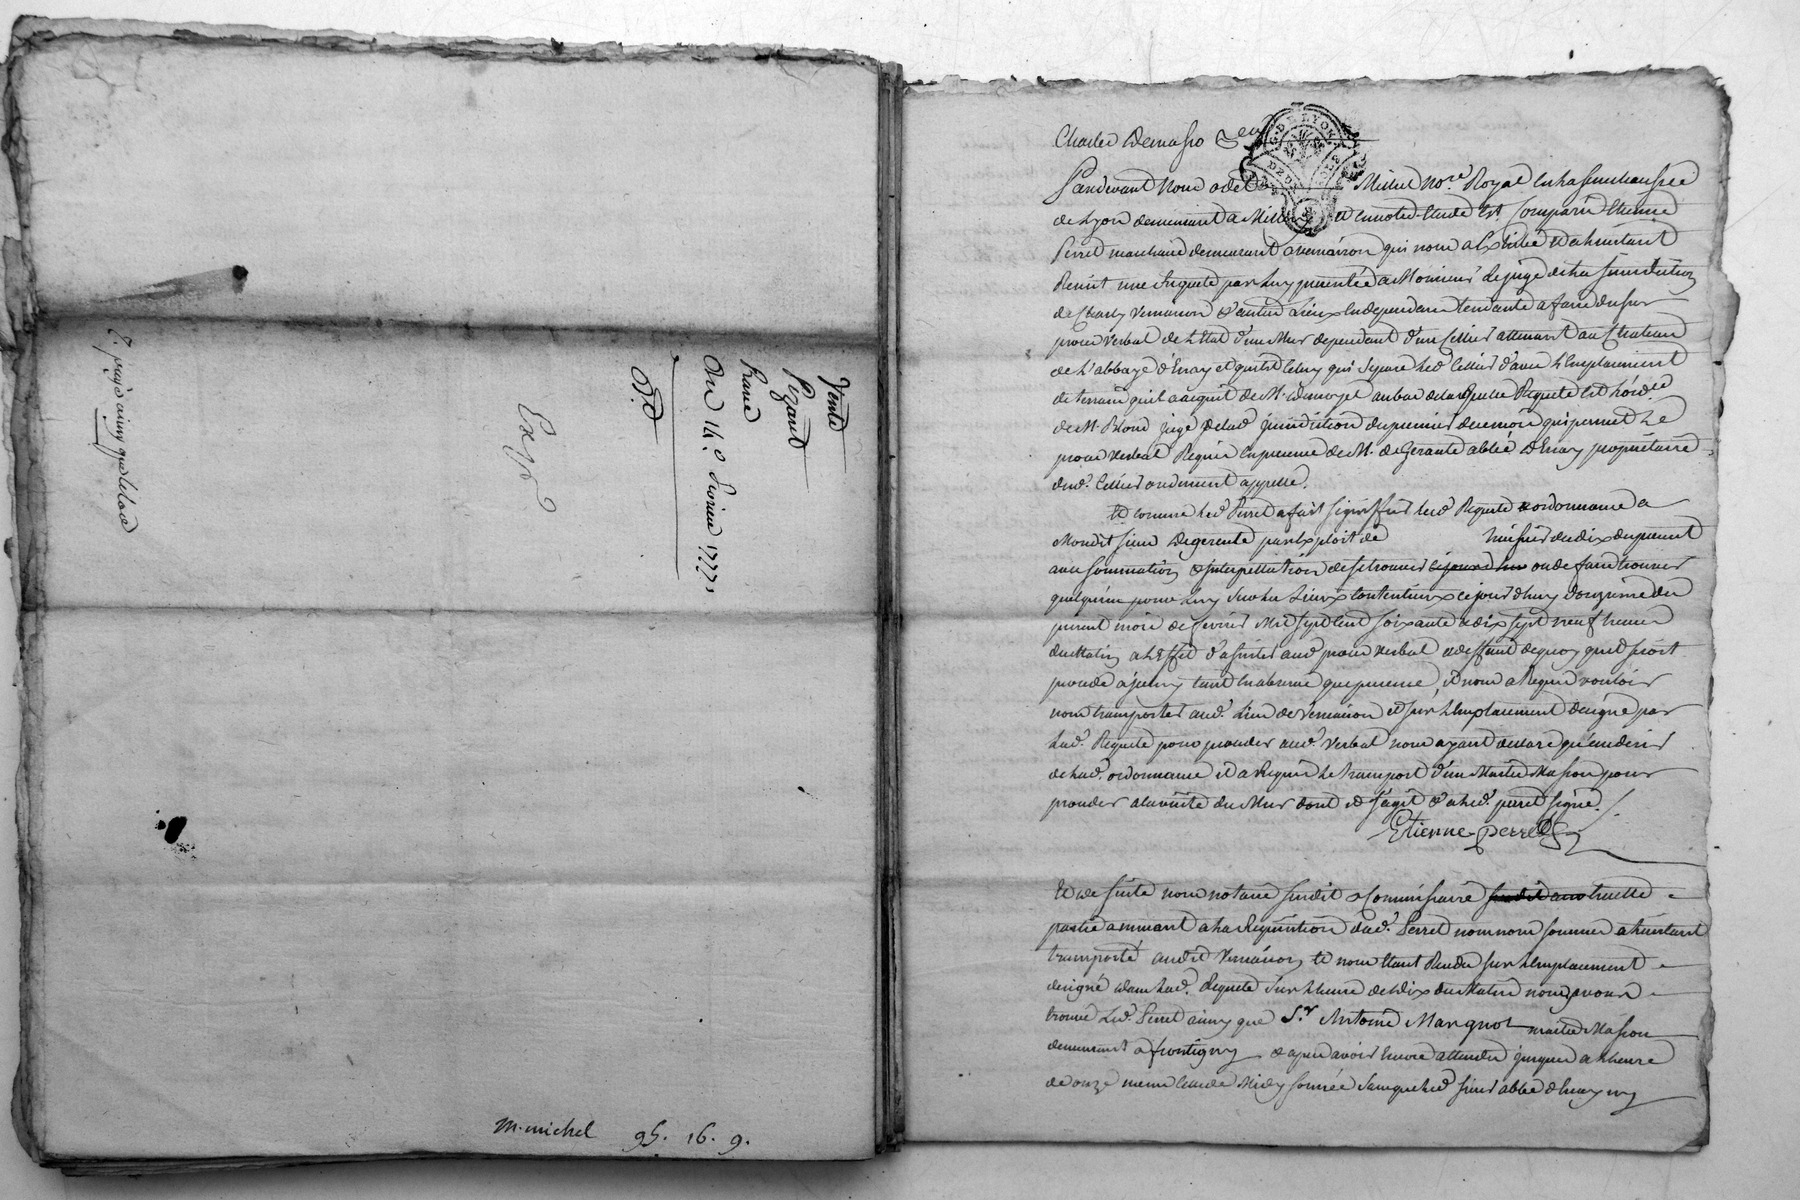 Vente
Pezant
franc
Du 14e Fevrier 1777
Exp
payé ainsy que le
m. michel 95. 16. 9.
Charles Demasso
G. DE LYON
Pardevant Nous Michel Nore Royal en la senechaussée
de Lyon demeurant a Millery et en notre Etude Est Comparu Etienne
Perret marchand demeurant a vernaison qui nous a Exhibé et a l'instant
Remit une Requete par luy presentée a Monsieur le juge de la jurisdiction
de Charly Vernaison & autres Lieux en dependant tendante a faire dresser
proces verbal de l'Etat d'un Mur dependant d'un Cellier attenant au Chateau
de l'abbaye d'Enay et qui est celuy qui separe led. Cellier d'avec l'Emplacement
de terrain qu'il a acquit de Mr au bas de laquelle Requete est l'ordce
de Mr Blond juge de lad. jurisdiction du premier du mois qui permet le
proces verbal Requis en presence de Mr. de Gerante abbé d'Enay proprietaire
dud. Cellier ou duement appellé.
Et comme led. Perret a fait signiffier lad. Requete & ordonnance a
Mondit sieur Degerente par Exploit de huissier du dix du present
avec sommation & interpellation de se trouver cejourdhuy ou de faire trouver
quelqu'un pour luy sur les Lieux contentieux cejourd'huy douzieme du
present mois de fevrier Mil sept Cent soixante & dix sept neuf heures
du Matin a l'Effet d'assister aud. proces verbal & deffaut de quoy quil seroit
procedé a jceluy tant en absence que presence, il nous a Requis vouloir
nous transporter aud. Lieu de Vernaison et sur l'Emplacement designé par
lad. Requete pour proceder aud. Verbal nous ayant declaré qu'en desir
de lad. ordonnance il a Requis le transport d'un Maitre Masson pour
proceder a la visite du Mur dont il s'agit & a led. perret signé.
Etienne perret
Et de suite nous notaire susdit & Commissaire en cette
partie amenant a la Requisition dud. Perret nous nous sommes a l'instant
transporté audit Vernaison et nous Etant Rendu sur l'Emplacement
designé dans lad. Requete sur l'heure de dix du Matin nous y avons
trouvé led. Perret ainsy que Sr. Antoine Margnot maitre Masson
demeurant a frontigny & apres avoir Encore attendu jusques a l'heure
de onze meme Celle de Midy sonnée sans que led. sieur abbé d'Enay ny